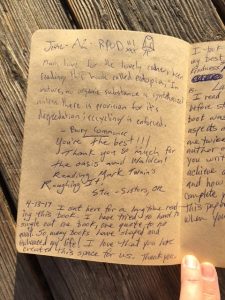 Man, love for the lovely cabin, been
reading this book called ecotopia. In
nature, no organic substance is synthesized
unless there is provision for its
degradation; recycling is enforced.
- Barry Commoner
You're the best!!!
Thank you so much for
the oasis and Walden!
Reading Mark Twain's
"Roughing It"
- Sisters, OR
4-13-17 I sat here for a long time read
ing this book. I have tried so hard to
single out one book, one quote to no
avail. So many books have shaped and
my life! I love that you have
created this space for us. Thank you.
I
my best
I read
before st
book wa
aspects o
one
author
you writ
achieve
and how
complete
This may
when yo